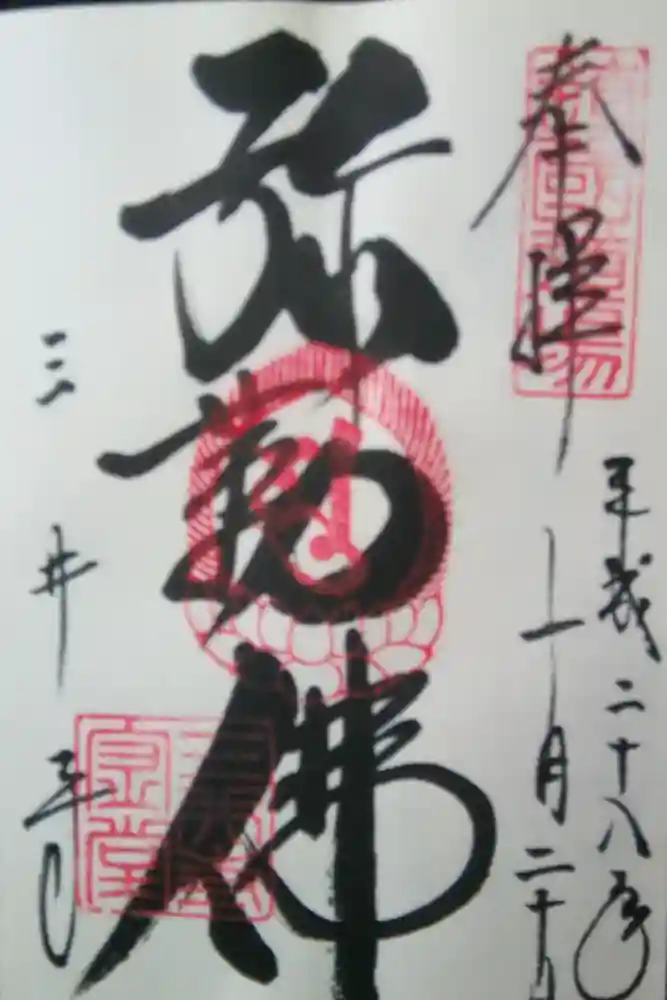 奉拝
平成二十八年
十一月二十日
弥勒佛
三井寺